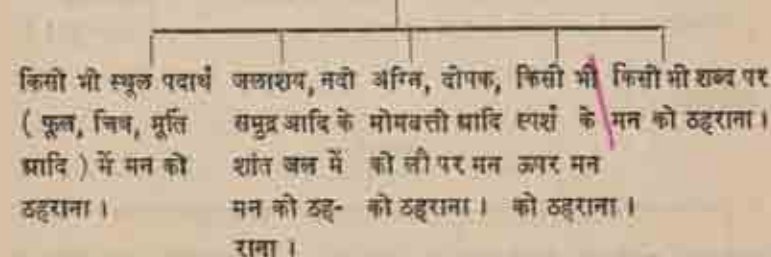 किसी भी स्थूल पदार्थ
( फूल, चित्र, मूर्ति
आदि ) में मन को
ठहराना ।
जलाशय, नदी
समुद्र आदि के
शांत जल में
मन को ठह-
राना ।
अग्नि, दीपक,
मोमबत्ती आदि
की लौ पर मन
को ठहराना ।
किसी भी
स्पर्श के
ऊपर मन
को ठहराना ।
किसी भी शब्द पर
मन को ठहराना ।